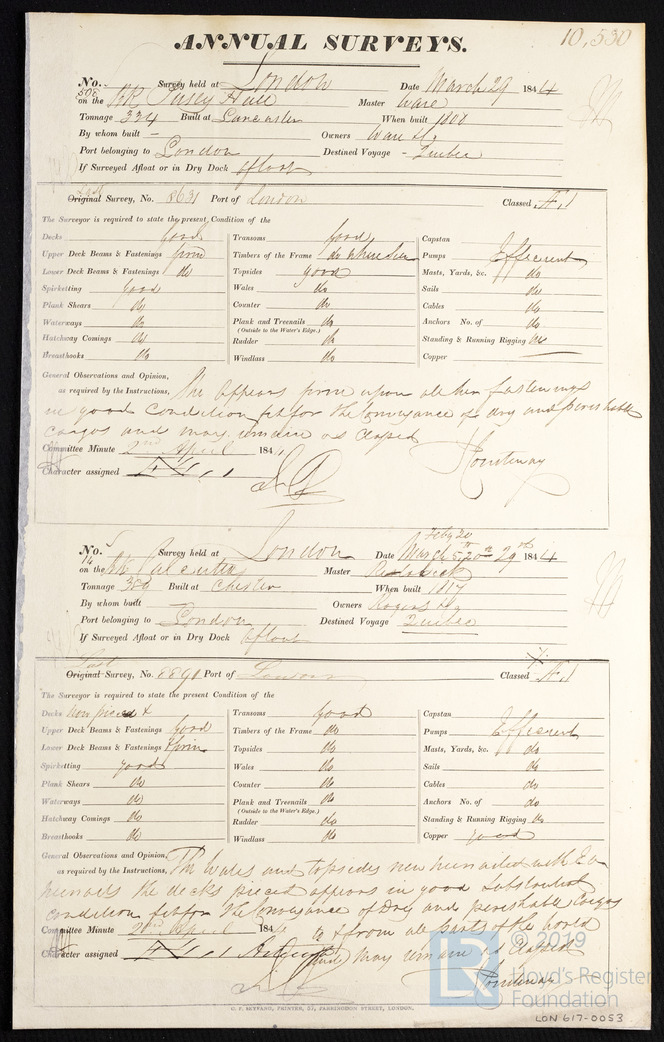 ANNUAL SURVEYS. 10,530
No. 508 Survey held at London Date March 29 1844
on the Bk Pusey Hall Master Ware
Tonnage 334 Built at Lancaster When built 1808
By whom built — Owners Ware &
Port belonging to London Destined Voyage - Quebec
If Surveyed Afloat or in Dry Dock Afloat
Original Last Survey, No. 8631 Port of London Classed Æ.1
The Surveyor is required to state the present Condition of the
Decks Good Transoms Good Capstan
Upper Deck Beams & Fastenings firm Timbers of the Frame do where seen Pumps Efficient
Lower Deck Beams & Fastenings do Topsides good Masts, Yards, &c. do
Spirketting good Wales do Sails do
Plank Shears do Counter do Cables do
Waterways do Plank and Treenails do Anchors No. of do
(Outside to the Water's Edge.)
Hatchway Comings do Rudder do Standing & Running Rigging do
Breasthooks do Windlass do Copper
General Observations and Opinion,
as required by the Instructions, She appears firm upon all her fastenings
in good condition fit for the Conveyance of dry and perishable
cargos and may remain as classed
Committee Minute 2nd April 184 Courtenay
Character assigned Æ 1
No. 14 Survey held at London Date Feby 20 March 5, 20th 29th 1844
on the Bk Calcutta Master
Tonnage 389 Built at Chester When built 1817
By whom built — Owners Rogers &
Port belonging to London Destined Voyage Quebec
If Surveyed Afloat or in Dry Dock Afloat
Original Last Survey, No. 8890 Port of London Classed Æ.1
The Surveyor is required to state the present Condition of the
Decks now pieced & Transoms Good Capstan
Upper Deck Beams & Fastenings Good Timbers of the Frame do Pumps Efficient
Lower Deck Beams & Fastenings & firm Topsides do Masts, Yards, &c. do
Spirketting good Wales do Sails do
Plank Shears do Counter do Cables do
Waterways do Plank and Treenails do Anchors No. of do
(Outside to the Water's Edge.)
Hatchway Comings do Rudder do Standing & Running Rigging do
Breasthooks do Windlass do Copper good
General Observations and Opinion,
as required by the Instructions, The Wales and topsides new
the decks pieced appears in good substantial
condition fit for the Conveyance of Dry and perishable Cargos
Committee Minute 2nd April 184 to & from all parts of the World
Character assigned Æ 1 may remain as classed
Courtenay
C. F. SEYFANG, PRINTER, 57, FARRINGDON STREET, LONDON.
LR © 2019
Lloyd's Register
Foundation
LON 617-0053